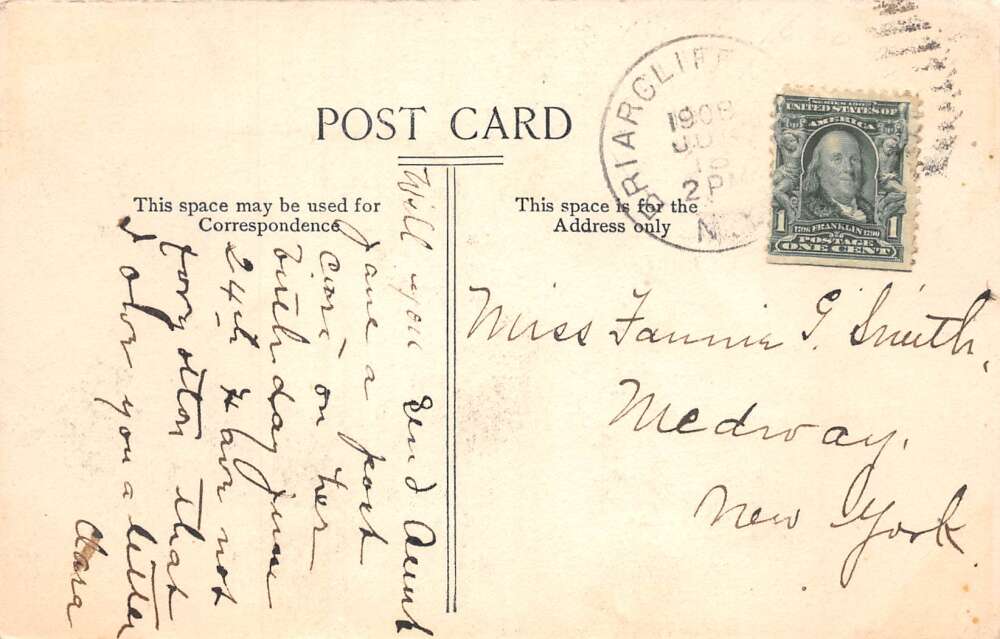 POST CARD
This space may be used for
Correspondence
This space is for the
Address only
BRIARCLIFF
1908
16
2 PM
N.Y.
SERIES 1902
UNITED STATES OF
AMERICA
1 1
1706 FRANKLIN 1790
POSTAGE
ONE CENT
Miss Fannie G. Smith,
Medway,
New York
Will you send Aunt
Jane a post
card on her
birthday June
24th Have not
forgotten that
I owe you a letter
Clara